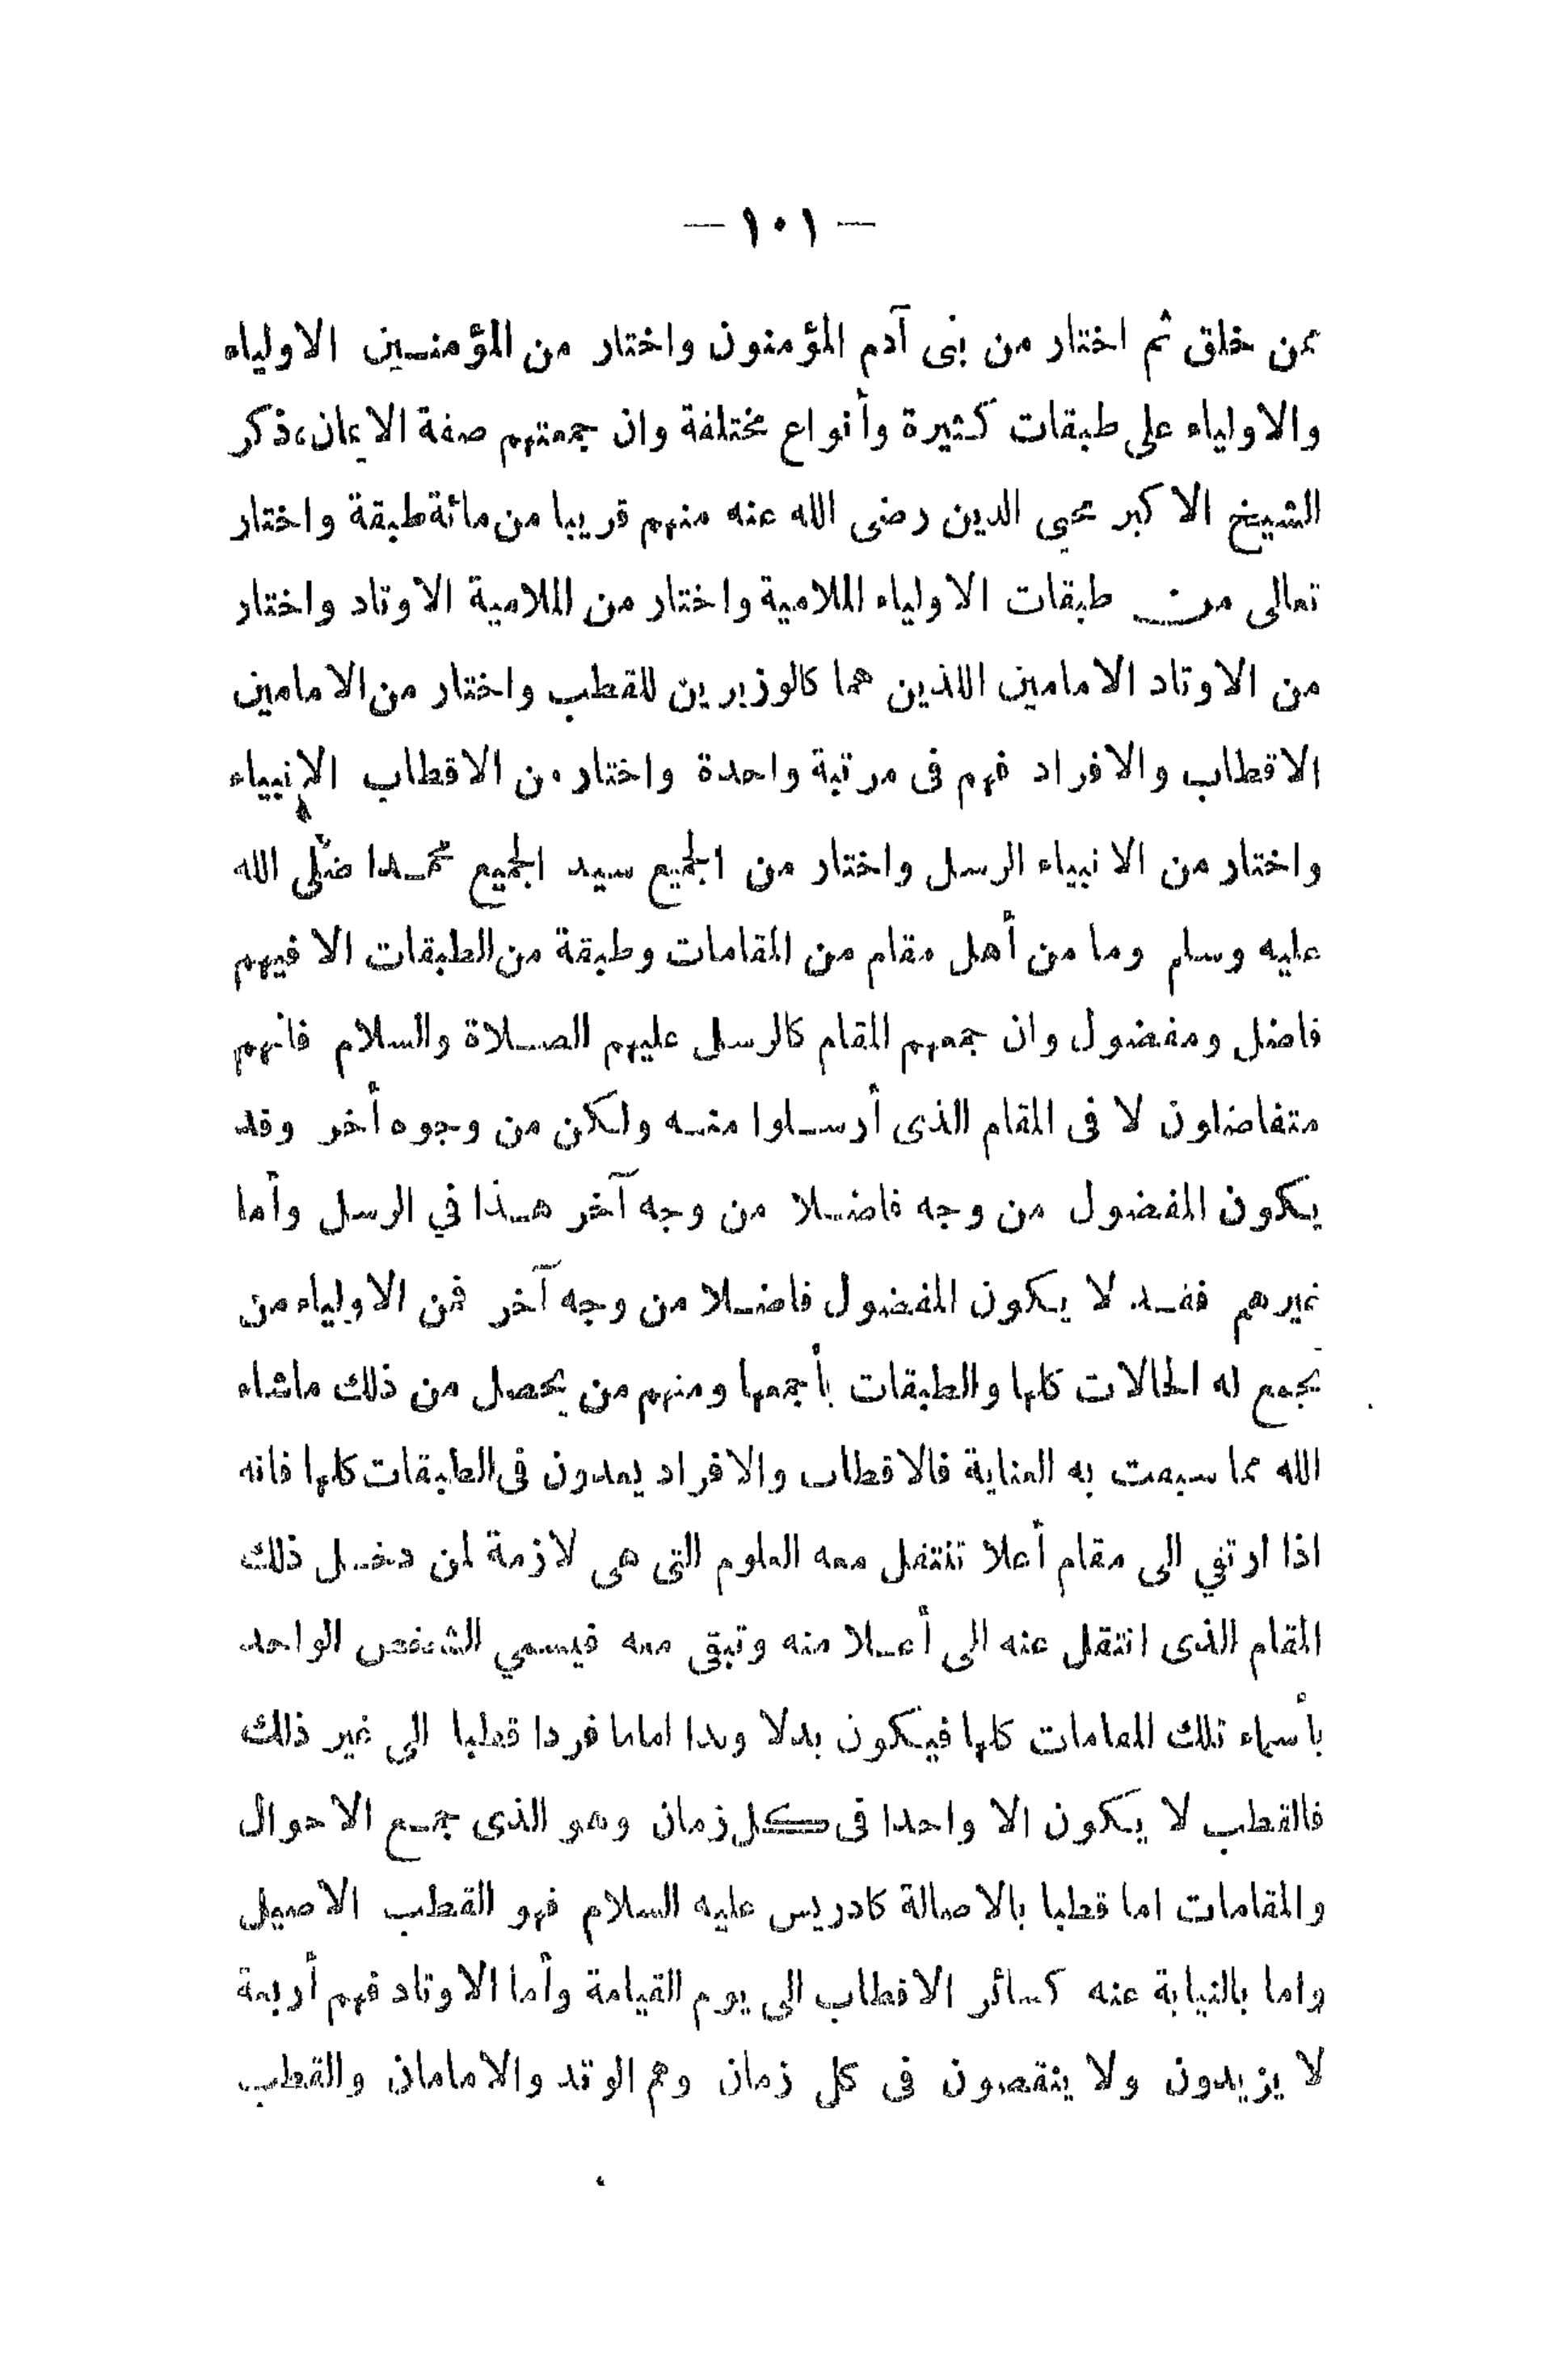 — ١٠١ —
ممن خلق ثم اختار من بنى آدم المؤمنون واختار من المؤمنـين الاولياء
والاولياء على طبقات كثيرة وأنواع مختلفة وان جمعتهم صفة الايمان،ذكر
الشيخ الاكبر محيى الدين رضى الله عنه منهم قريبا من مائة طبقة واختار
تعالى من طبقات الاولياء الملامية واختار من الملامية الاوتاد واختار
من الاوتاد الامامين اللذين هما كالوزيرين للقطب واختار من الامامين
الاقطاب والافراد فهم فى مرتبة واحدة واختار من الاقطاب الانبياء
واختار من الانبياء الرسل واختار من الجميع سيد الجميع محمـدا صلى الله
عليه وسلم وما من أهل مقام من المقامات وطبقة من الطبقات الا فيهم
فاضل ومفضول وان جمعهم المقام كالرسل عليهم الصـلاة والسلام فانهم
متفاضلون لا فى المقام الذى أرسـلوا منـه ولكن من وجوه أخر وقد
يكون المفضول من وجه فاضـلا من وجه آخر هـذا في الرسل وأما
غيرهم فقـد لا يكون المفضول فاضـلا من وجه آخر فمن الاولياء من
يجمع له الحالات كلها والطبقات بأجمعها ومنهم من يحصل من ذلك ماشاء
الله مما سبقت به العناية فالاقطاب والافراد يعدون فى الطبقات كلها فانه
اذا ارتقي الى مقام أعلا تنتقل معه العلوم التى هى لازمة لمن دخـل ذلك
المقام الذى انتقل عنه الى أعـلا منه وتبقى معه فيسمي الشخص الواحد
بأسماء تلك المقامات كلها فيكون بدلا وتدا اماما فردا قطبا الى غير ذلك
فالقطب لا يكون الا واحدا فى كل زمان وهو الذى جمـع الاحوال
والمقامات اما قطبا بالاصالة كادريس عليه السلام فهو القطب الاصيل
واما بالنيابة عنه كسائر الاقطاب الى يوم القيامة وأما الاوتاد فهم أربعة
لا يزيدون ولا ينقصون فى كل زمان وهم الوتد والامامان والقطب